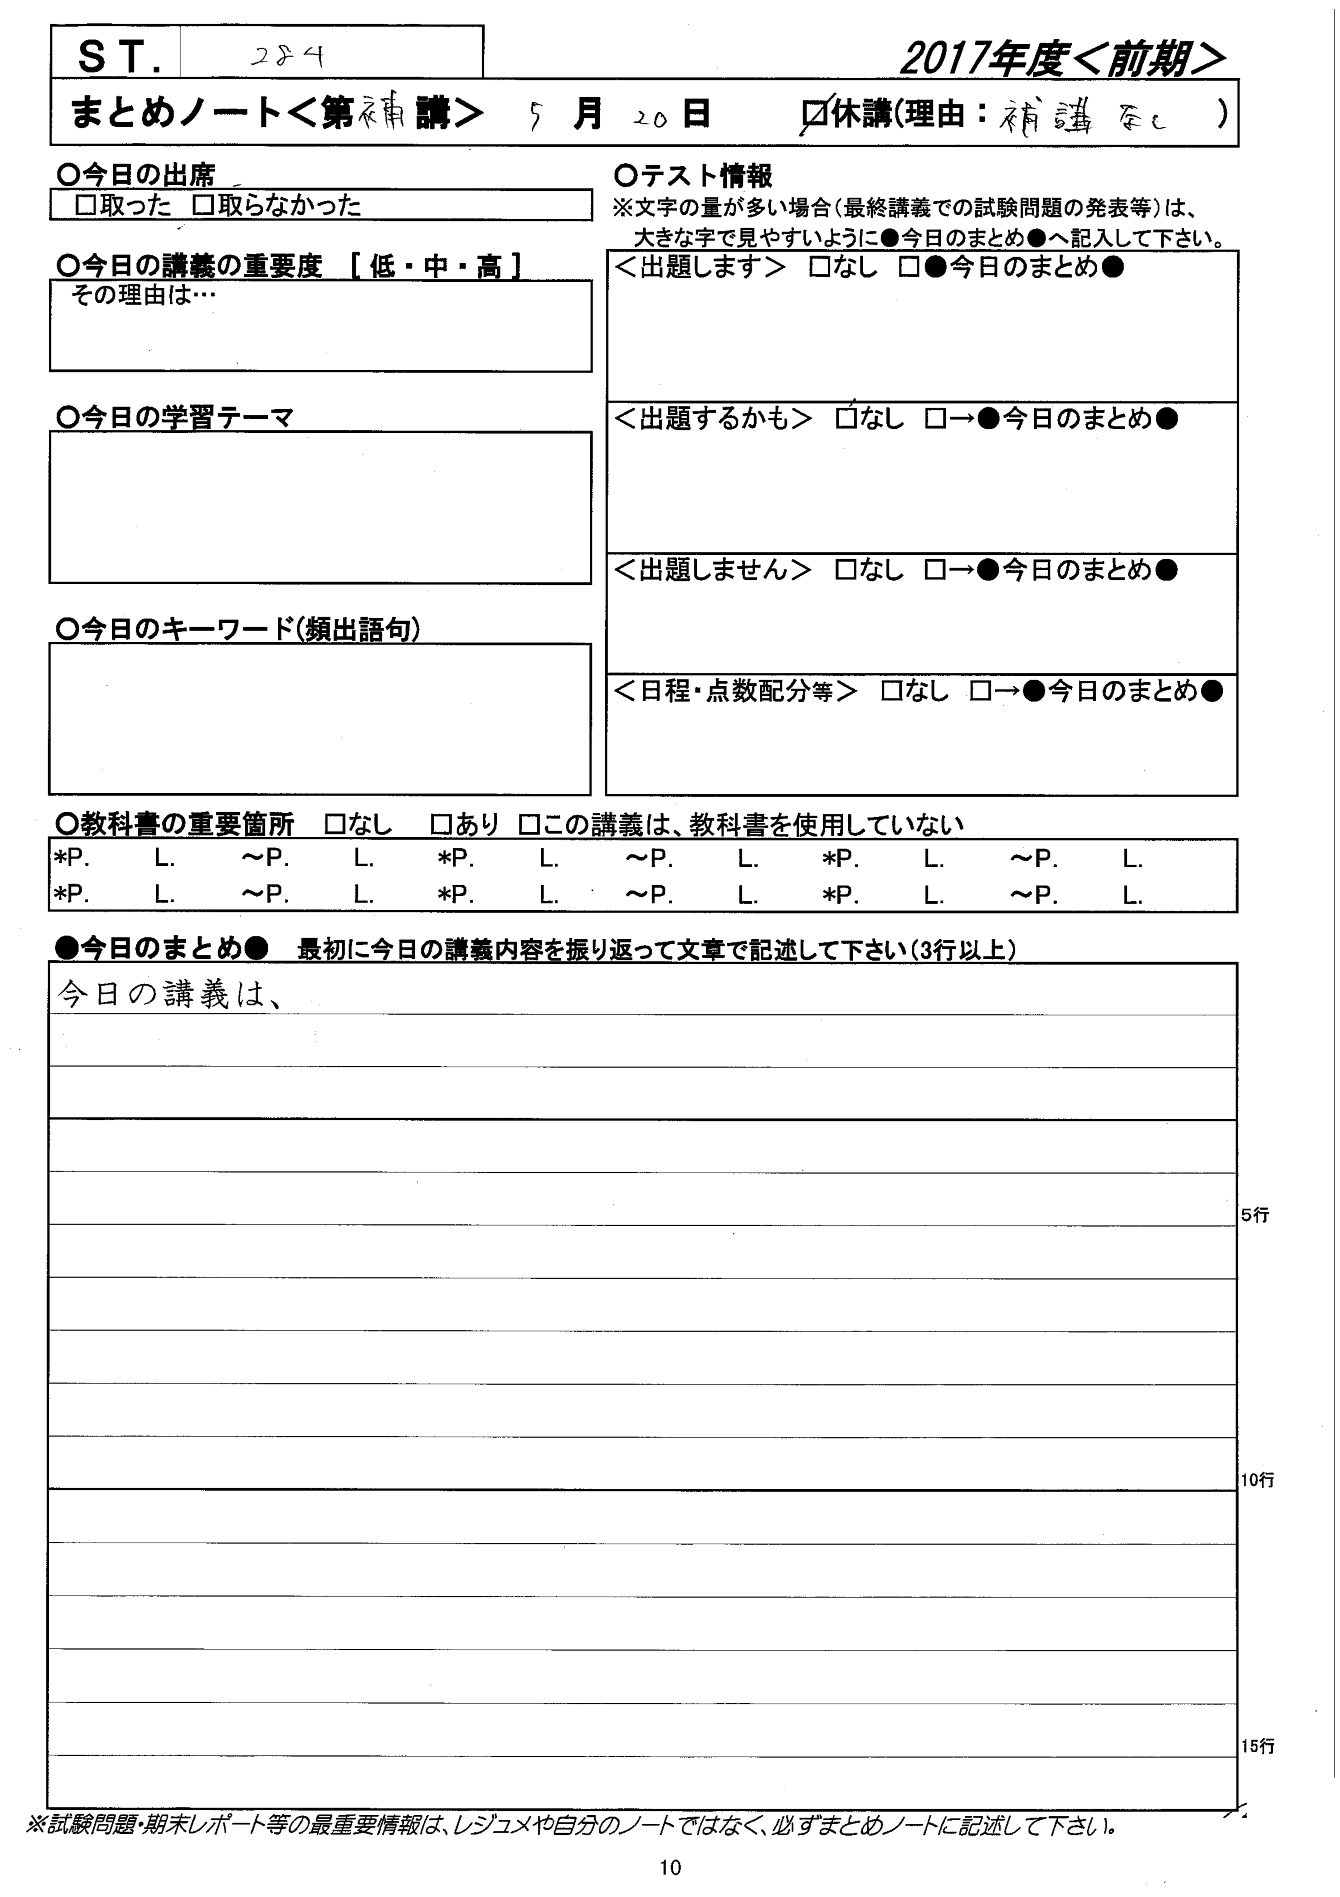 ST. 284
2017年度＜前期＞
まとめノート＜第補講＞ 5月20日 ☑休講(理由：補講なし)
○今日の出席
□取った □取らなかった
○今日の講義の重要度 [ 低・中・高 ]
その理由は…
○今日の学習テーマ
○今日のキーワード(頻出語句)
○テスト情報
※文字の量が多い場合(最終講義での試験問題の発表等)は、
大きな字で見やすいように●今日のまとめ●へ記入して下さい。
＜出題します＞ □なし □●今日のまとめ●
＜出題するかも＞ □なし □→●今日のまとめ●
＜出題しません＞ □なし □→●今日のまとめ●
＜日程・点数配分等＞ □なし □→●今日のまとめ●
○教科書の重要箇所 □なし □あり □この講義は、教科書を使用していない
*P. L. ～P. L. *P. L. ～P. L. *P. L. ～P. L.
*P. L. ～P. L. *P. L. ～P. L. *P. L. ～P. L.
●今日のまとめ● 最初に今日の講義内容を振り返って文章で記述して下さい(3行以上)
今日の講義は、
5行
10行
15行
※試験問題・期末レポート等の最重要情報は、レジュメや自分のノートではなく、必ずまとめノートに記述して下さい。
10